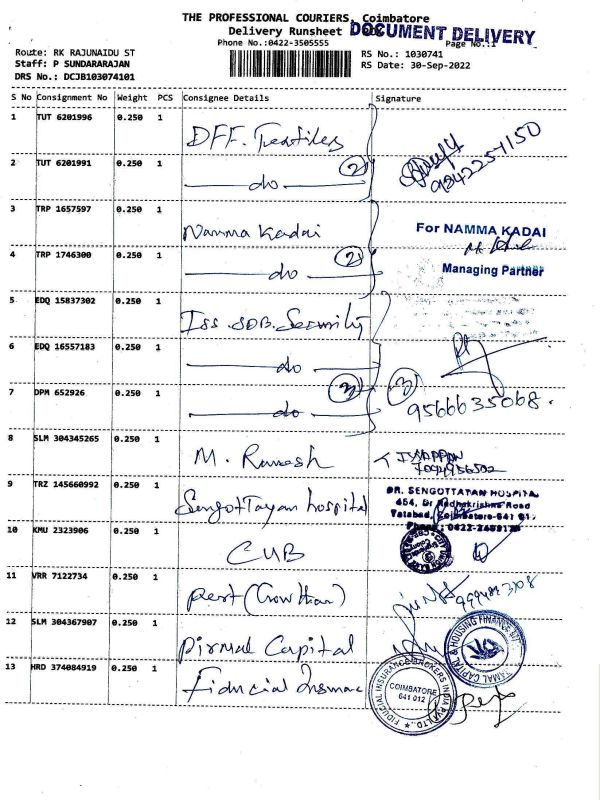 THE PROFESSIONAL COURIERS, Coimbatore
Delivery Runsheet
DOCUMENT DELIVERY
Phone No.:0422-3505555
Page No.:1
Route: RK RAJUNAIDU ST
RS No.: 1030741
Staff: P SUNDARARAJAN
RS Date: 30-Sep-2022
DRS No.: DCJB103074101
S No Consignment No Weight PCS Consignee Details Signature
1 TUT 6201996 0.250 1 DFF. Textiles
9842257150
2 TUT 6201991 0.250 1 do 2
3 TRP 1657597 0.250 1 Namma Kadai
For NAMMA KADAI
4 TRP 1746300 0.250 1 do 2
Managing Partner
5 EDQ 15837302 0.250 1 Iss. SDB. Security
6 EDQ 16557183 0.250 1 do
7 DPM 652926 0.250 1 do 3 3
9566635068.
8 SLM 304345265 0.250 1 M. Ramesh
9 TRZ 145660992 0.250 1 SengotTayan hospital
DR. SENGOTTAYAN HOSPITAL
454, Dr Radhakrishna Road
Tatabad, Coimbatore-641 012
10 KMU 2323906 0.250 1 CUB
11 VRR 7122734 0.250 1
12 SLM 304367907 0.250 1 Pirmal Capital
CAPITAL & HOUSING FINANCE
13 HRD 374084919 0.250 1 Fiducial Insurance
FIDUCIAL INSURANCE BROKERS INDIA PVT LTD.
COIMBATORE
641 012